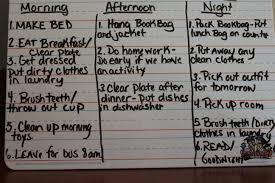 Morning
1. MAKE BED
2. EAT Breakfast/
Clear Plate
3. Get dressed
Put dirty clothes
in laundry
4. Brush teeth/
throw out cup
5. Clean up morning
toys
6. Leave for bus 8am
Afternoon
1. Hang Book Bag
and jacket
2. Do homework-
Do early if we have
an activity
3. Clear Plate after
dinner- Put dishes
in dishwasher
Night
1. Pack Bookbag- Put
lunch Bag on counter
2. Put away any
clean clothes
3. Pick out outfit
for tomorrow
4. Pick up room
5. Brush teeth/Dirty
clothes in laundry
6. READ/
Goodnight